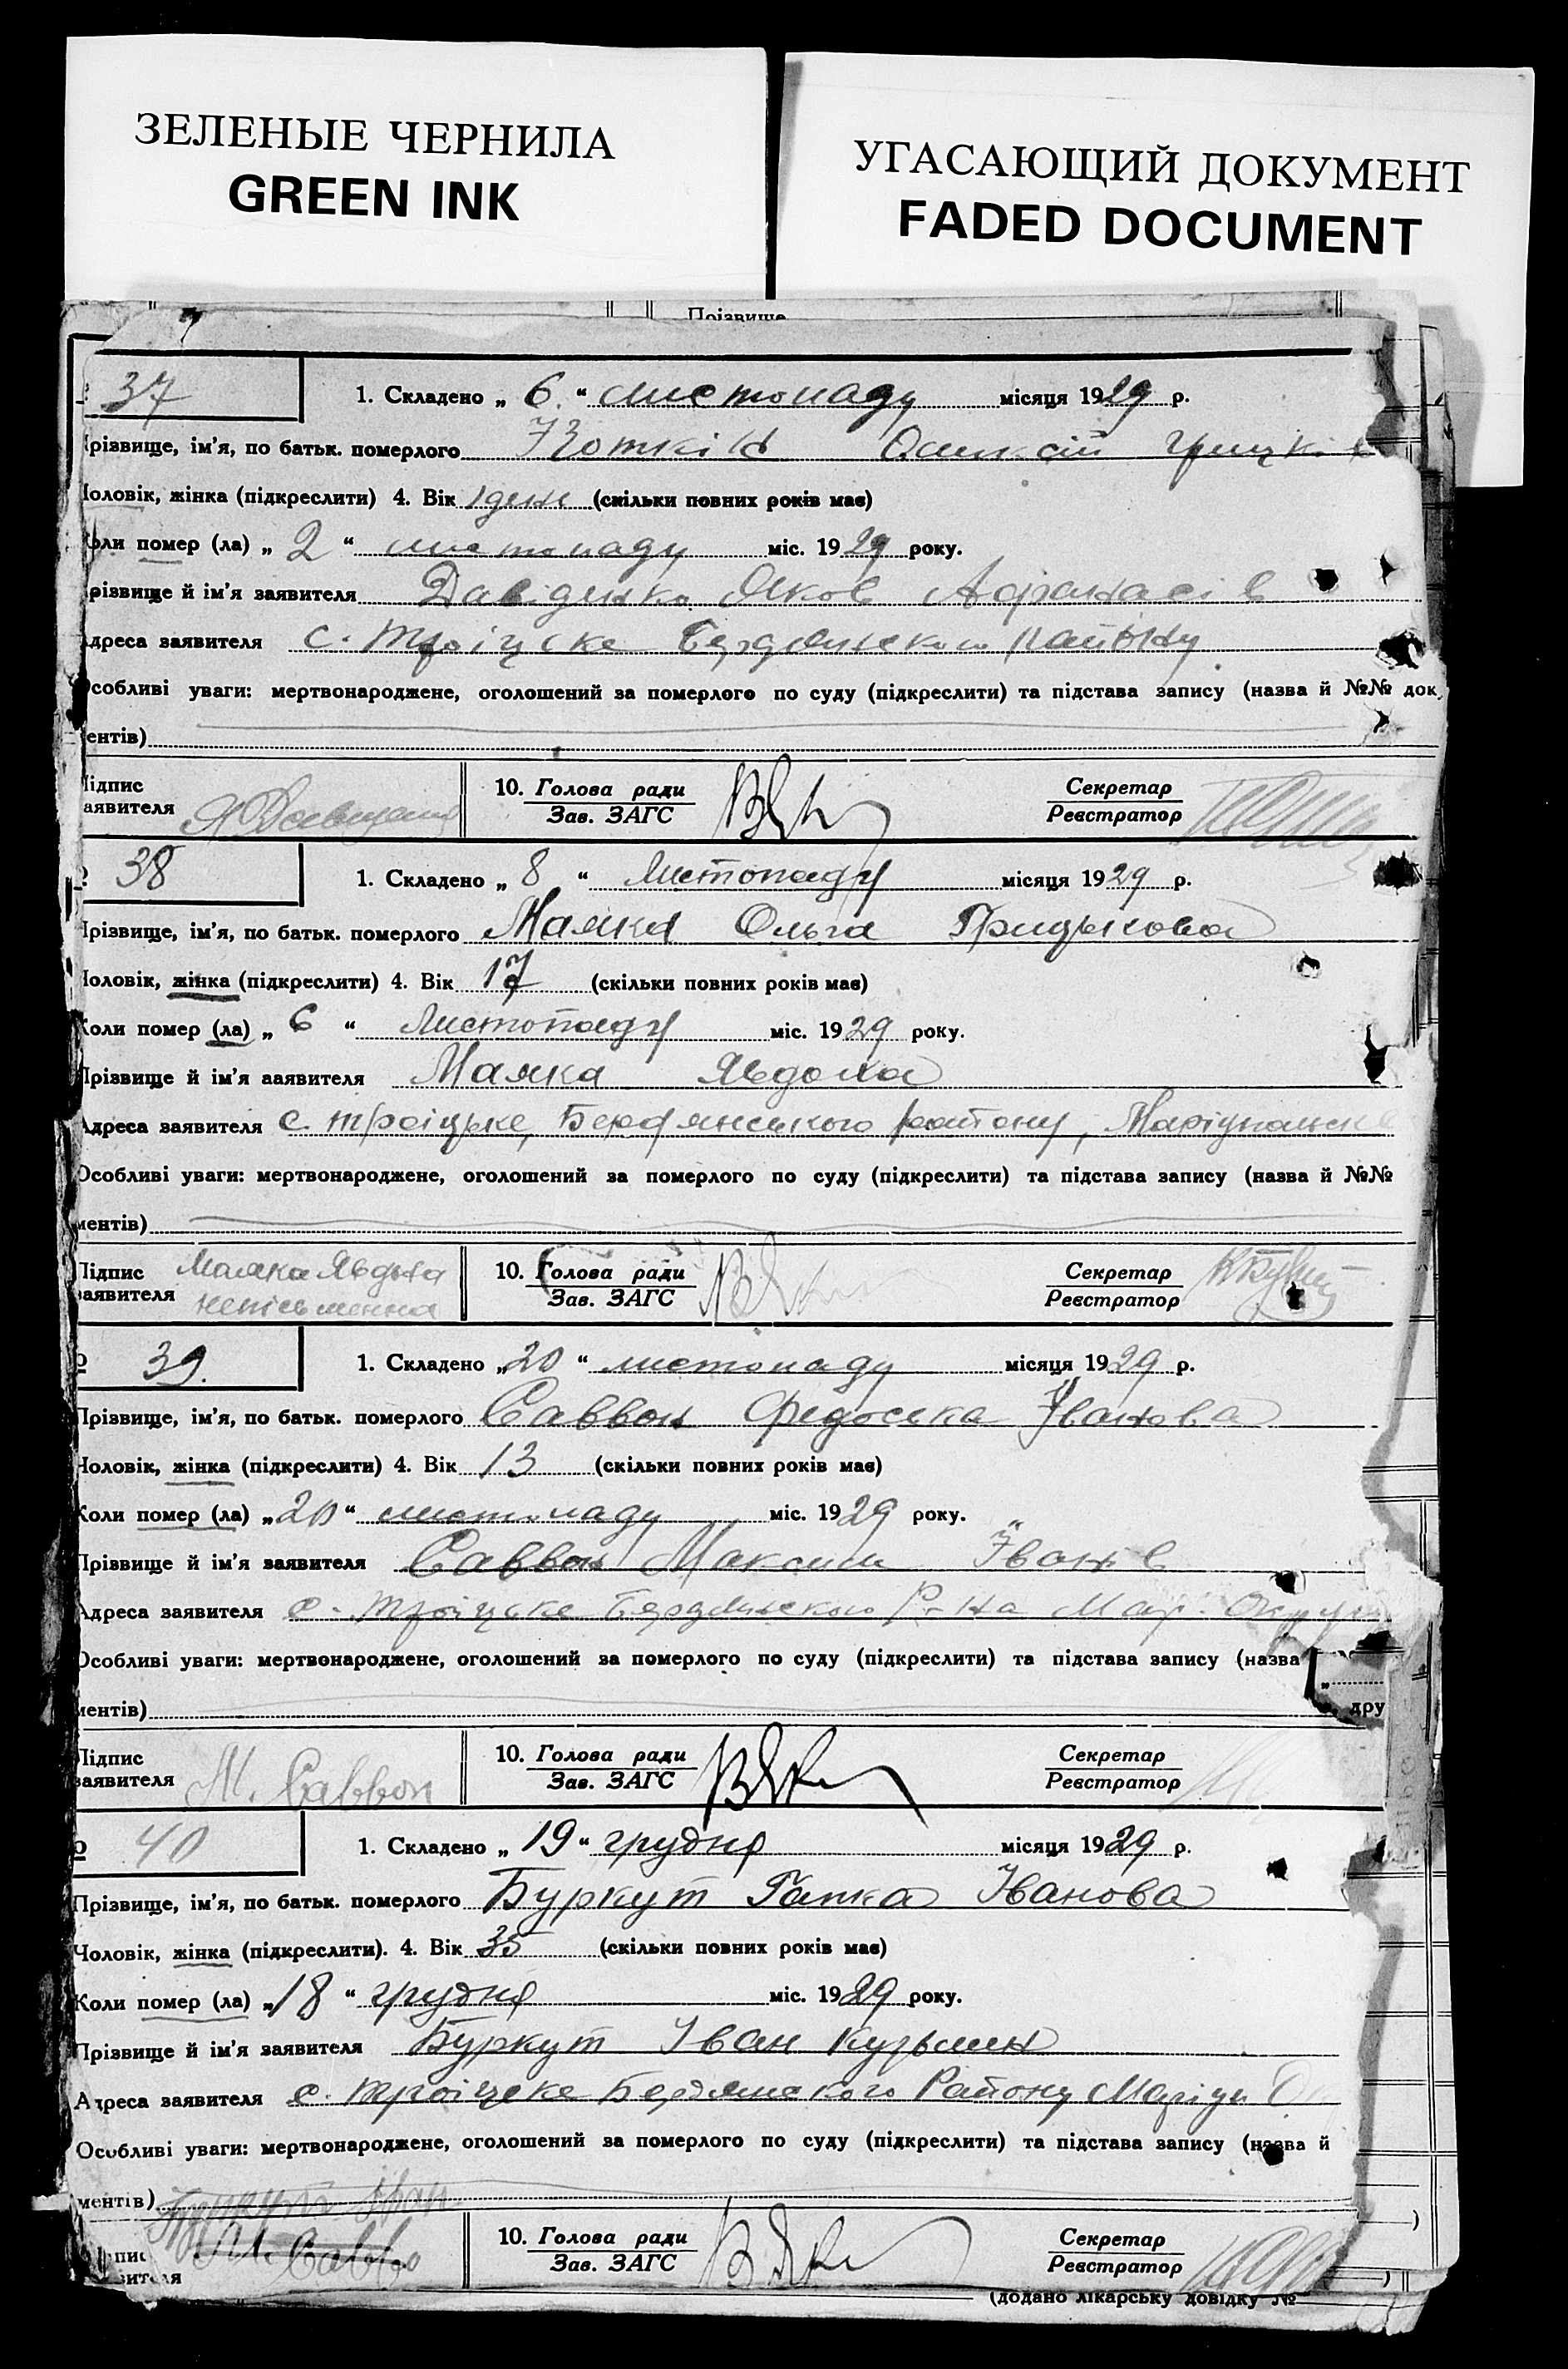 ЗЕЛЕНЫЕ ЧЕРНИЛА
GREEN INK
УГАСАЮЩИЙ ДОКУМЕНТ
FADED DOCUMENT
Прізвище
37
1. Складено „ 6 “ листопаду місяця 1929 р.
різвище, ім’я, по батьк. померлого
Чоловік, жінка (підкреслити) 4. Вік 1 день (скільки повних років має)
Коли помер (ла) „ 2 “ листопаду міс. 1929 року.
різвище й ім’я заявителя Давіденко Яков Афанасів
дреса заявителя с. Троіцьке Бердянского району
Особливі уваги: мертвонароджене, оголошений за померлого по суду (підкреслити) та підстава запису (назва й №№ док
ентів)
Підпис заявителя
10. Голова ради
Зав. ЗАГС
Секретар
Реєстратор
38
1. Складено „ 8 “ Листопаду місяця 1929 р.
Прізвище, ім’я, по батьк. померлого Маяка Ольга Грицькова
Чоловік, жінка (підкреслити) 4. Вік 17 (скільки повних років має)
Коли помер (ла) „ 6 “ Листопаду міс. 1929 року.
Прізвище й ім’я ааявителя Маяка Явдоха
Адреса заявителя с. Троіцьке, Бердянського району, Маріупольськ
Особливі уваги: мертвонароджене, оголошений за померлого по суду (підкреслити) та підстава запису (назва й №№
ментів)
Підпис заявителя Маяка Явдоха
неписьменна
10. Голова ради
Зав. ЗАГС
Секретар
Реєстратор
39.
1. Складено „20“ листопаду місяця 1929 р.
Прізвище, ім’я, по батьк. померлого Саввон Федоська Іванова
Чоловік, жінка (підкреслити) 4. Вік 13 (скільки повних років має)
Коли помер (ла) „20“ листопаду міс. 1929 року.
Прізвище й ім’я заявителя Саввон Максим Іванів
Адреса заявителя с. Троіцьке Бердянского Р-на Мар. Округи
Особливі уваги: мертвонароджене, оголошений за померлого по суду (підкреслити) та підстава запису (назва
ментів) дру
Підпис заявителя М. Саввон
10. Голова ради
Зав. ЗАГС
Секретар
Реєстратор
40
1. Складено „ 19 “ грудня місяця 1929 р.
Прізвище, ім’я, по батьк. померлого Буркут Гапка Іванова
Чоловік, жінка (підкреслити). 4. Вік 35 (скільки повних років має)
Коли помер (ла) „18 “ грудня міс. 1929 року.
Прізвище й ім’я заявителя Буркут Іван Кузьмин
Адреса заявителя с. Троіцьке Бердянского Району Маріуп О
Особливі уваги: мертвонароджене, оголошений за померлого по суду (підкреслити) та підстава запису (назва й
ментів) Буркут Іван
М. Савво
10. Голова ради
Зав. ЗАГС
Секретар
Реєстратор
(додано лікарську довідку №